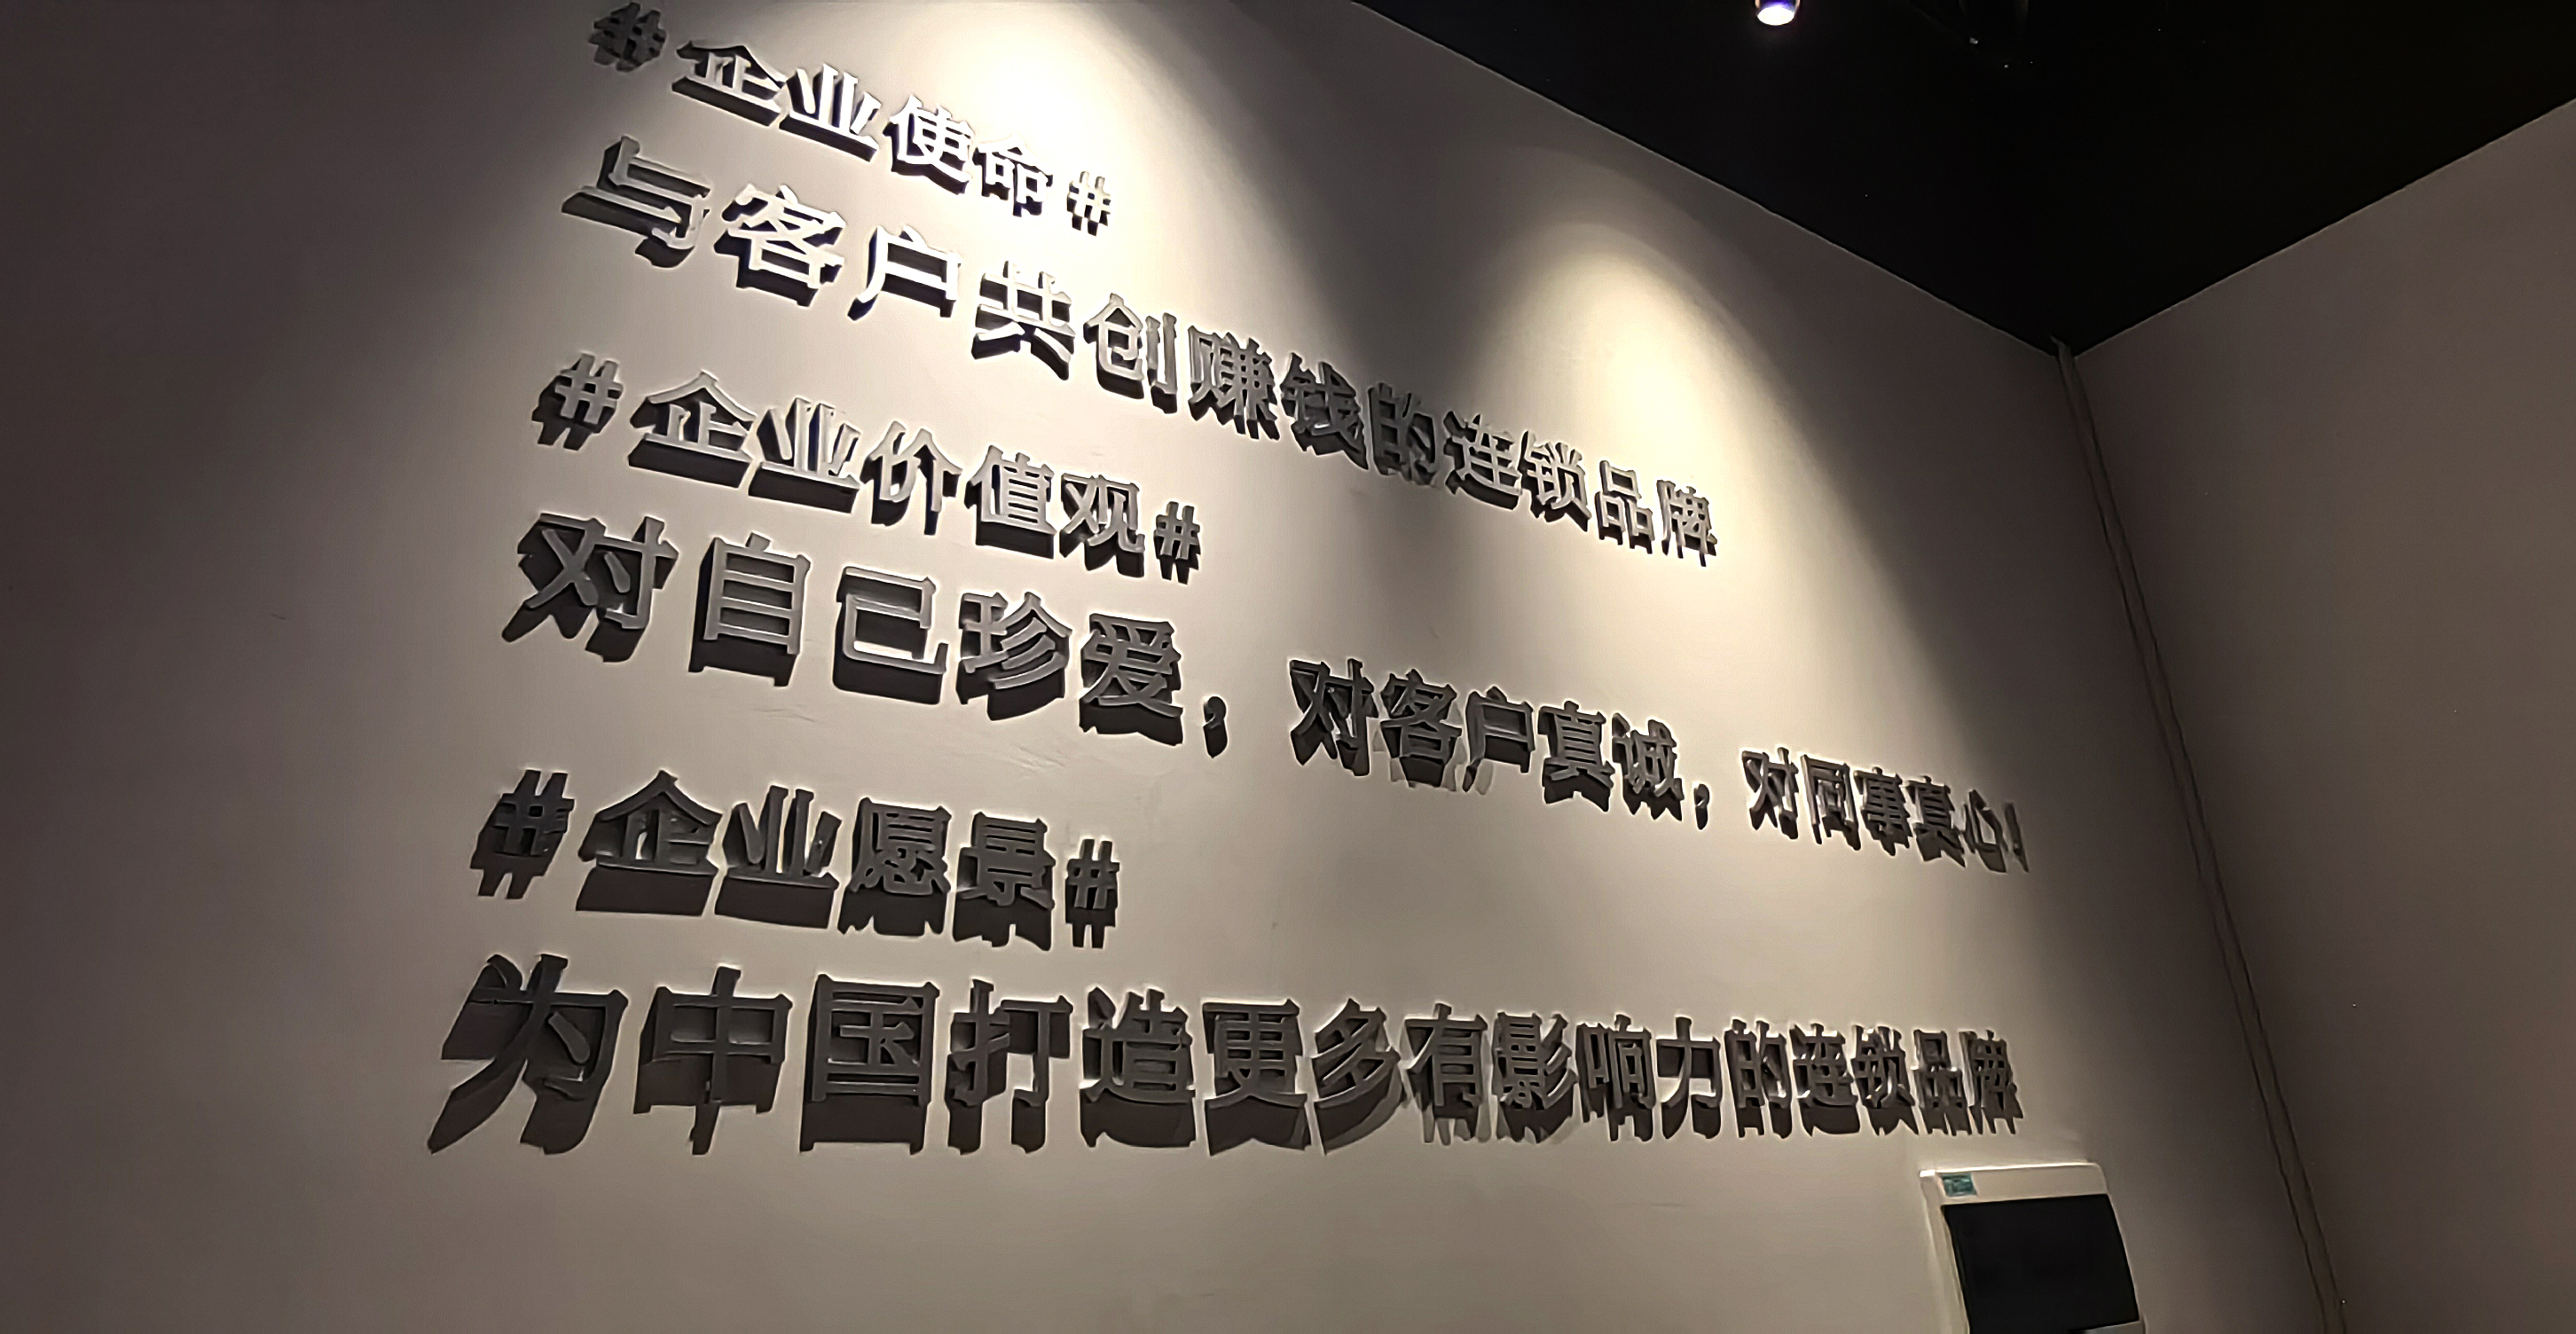 #企业使命#
与客户共创赚钱的连锁品牌
#企业价值观#
对自己珍爱，对客户真诚，对同事真心！
#企业愿景#
为中国打造更多有影响力的连锁品牌